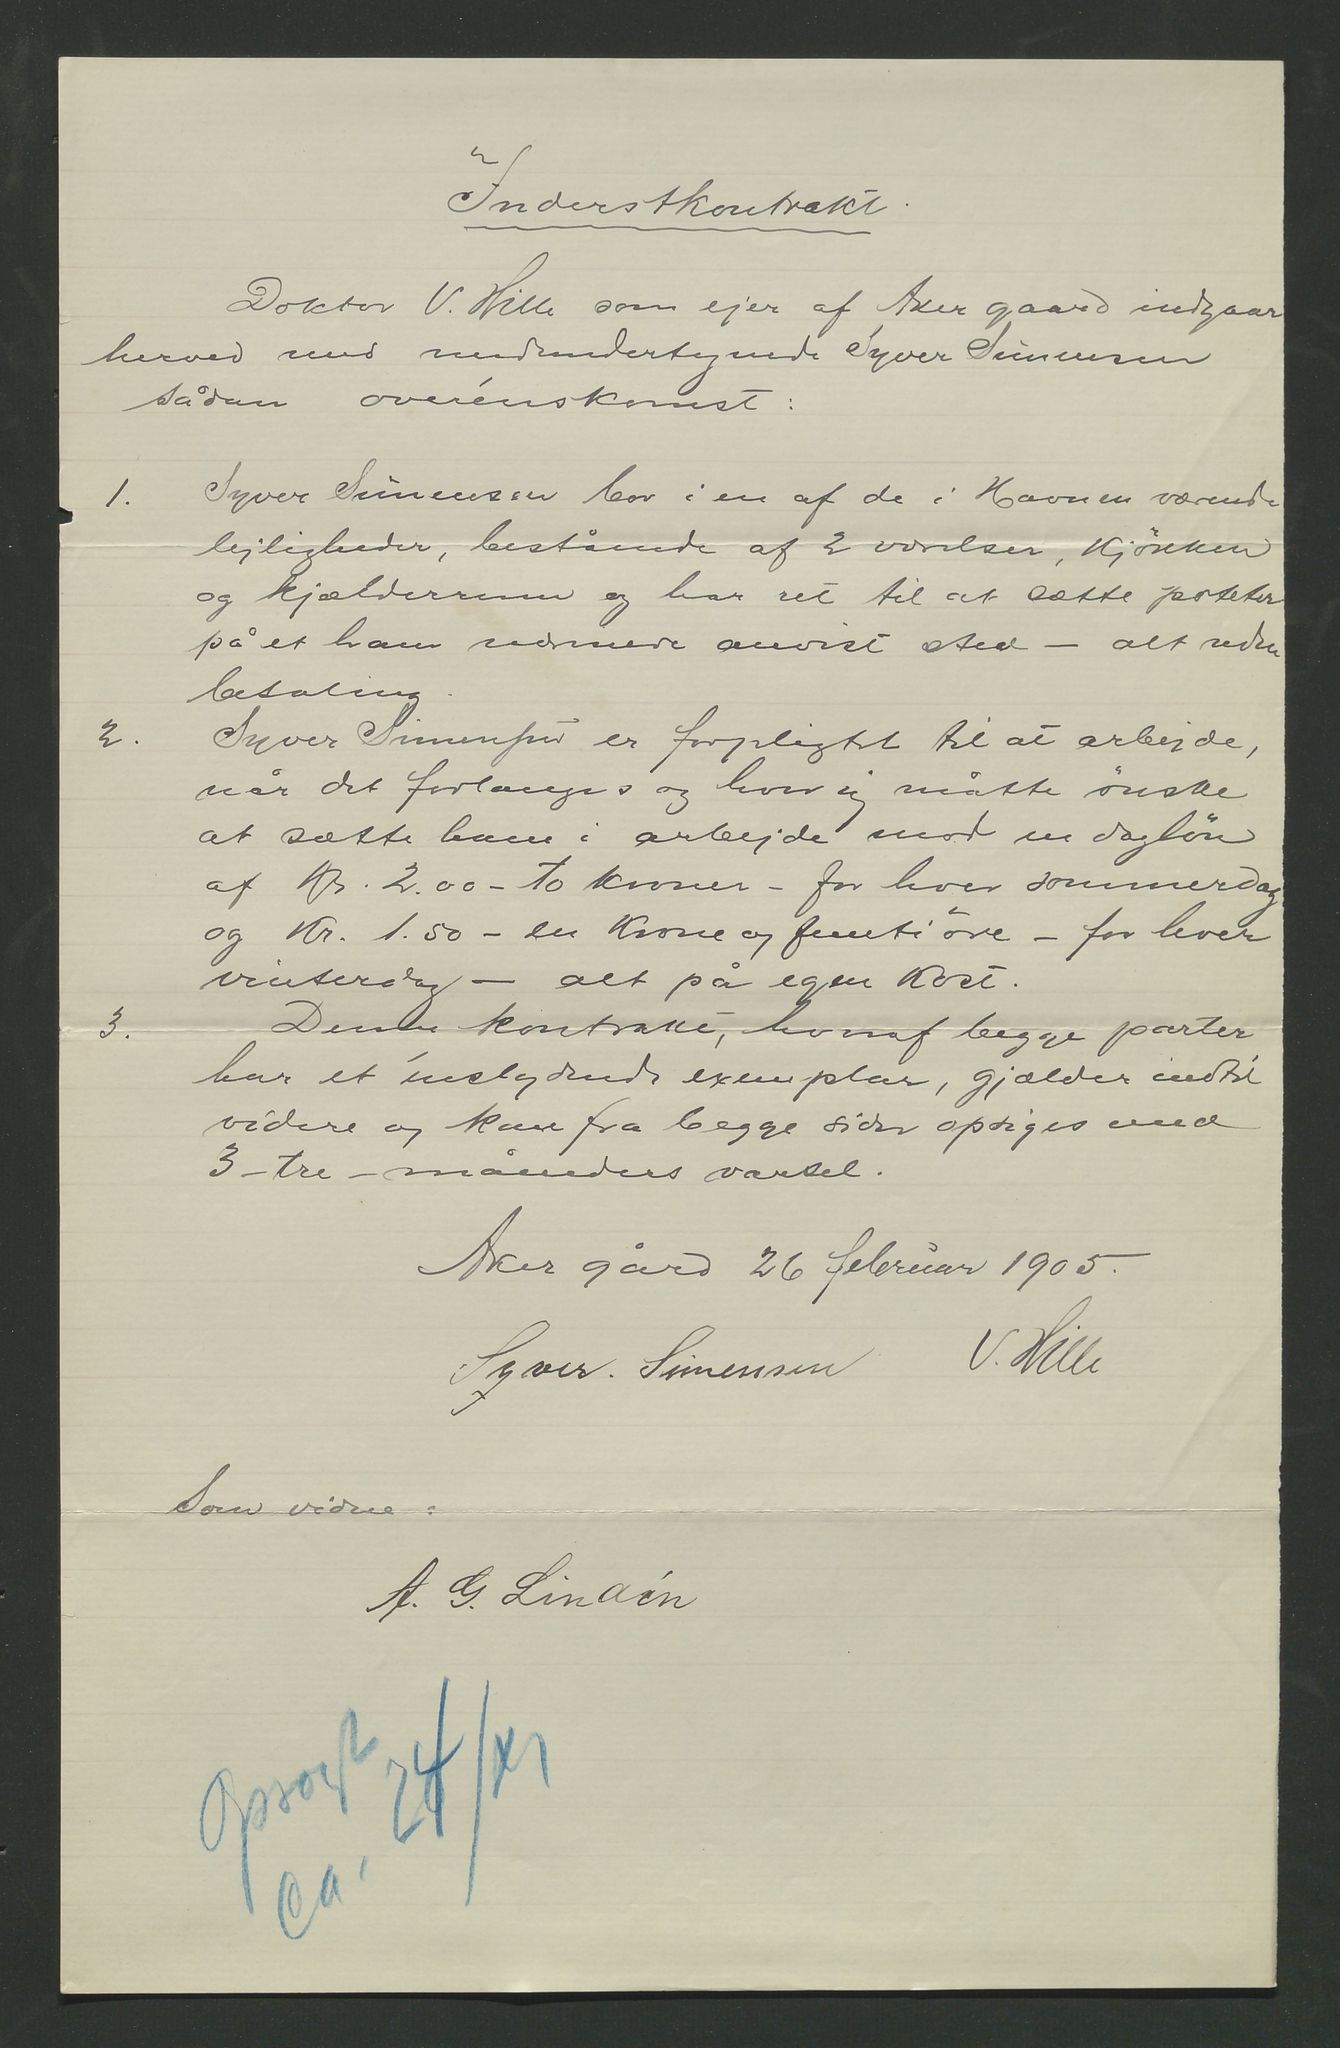 Inderstkontrakt.
Doktor V. Hille som ejer af Aker gaard indgaar
herved med nedundertegnede Syver Simensen
sådan overénskomst:
1. Syver Simensen bor i en af de i Havnen værende
lejligheder, bestående af 2 værelser, kjökken
og kjælderrum og har ret til at sætte poteter
på et ham nærmere anvist sted — alt uden
betaling.
2. Syver Simensen er forpligtet til at arbejde,
når det forlanges og hvor jeg måtte önske
at sætte ham i arbejde mod en daglön
af Kr. 2.00 – to kroner – for hver sommerdag
og Kr. 1.50 – en krone og femti öre – for hver
vinterdag — alt på egen kost.
3. Denne kontrakt, hvoraf begge parter
har et énslydende exemplar, gjælder indtil
videre og kan fra begge sider opsiges med
3 – tre – måneders varsel.
Aker gård 26 februar 1905.
Syver. Simensen V. Hille
Som vidne:
A. G. Lindén
Opsagt
ca. 24/XI